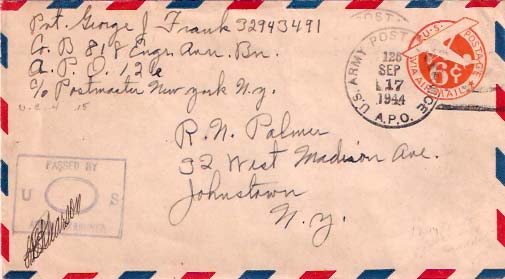 Pvt. George J. Frank 32943491
Co. B 818 Engr. Avn. Bn.
A. P. O. 126
c/o Postmaster New York N.Y.
U.S. ARMY POSTAL SERVICE
126
SEP
17
1944
A.P.O.
U.S. POSTAGE
6¢
VIA AIR MAIL
R. N. Palmer
32 West Madison Ave.
Johnstown
N. Y.
PASSED BY
U S
ARMY EXAMINER